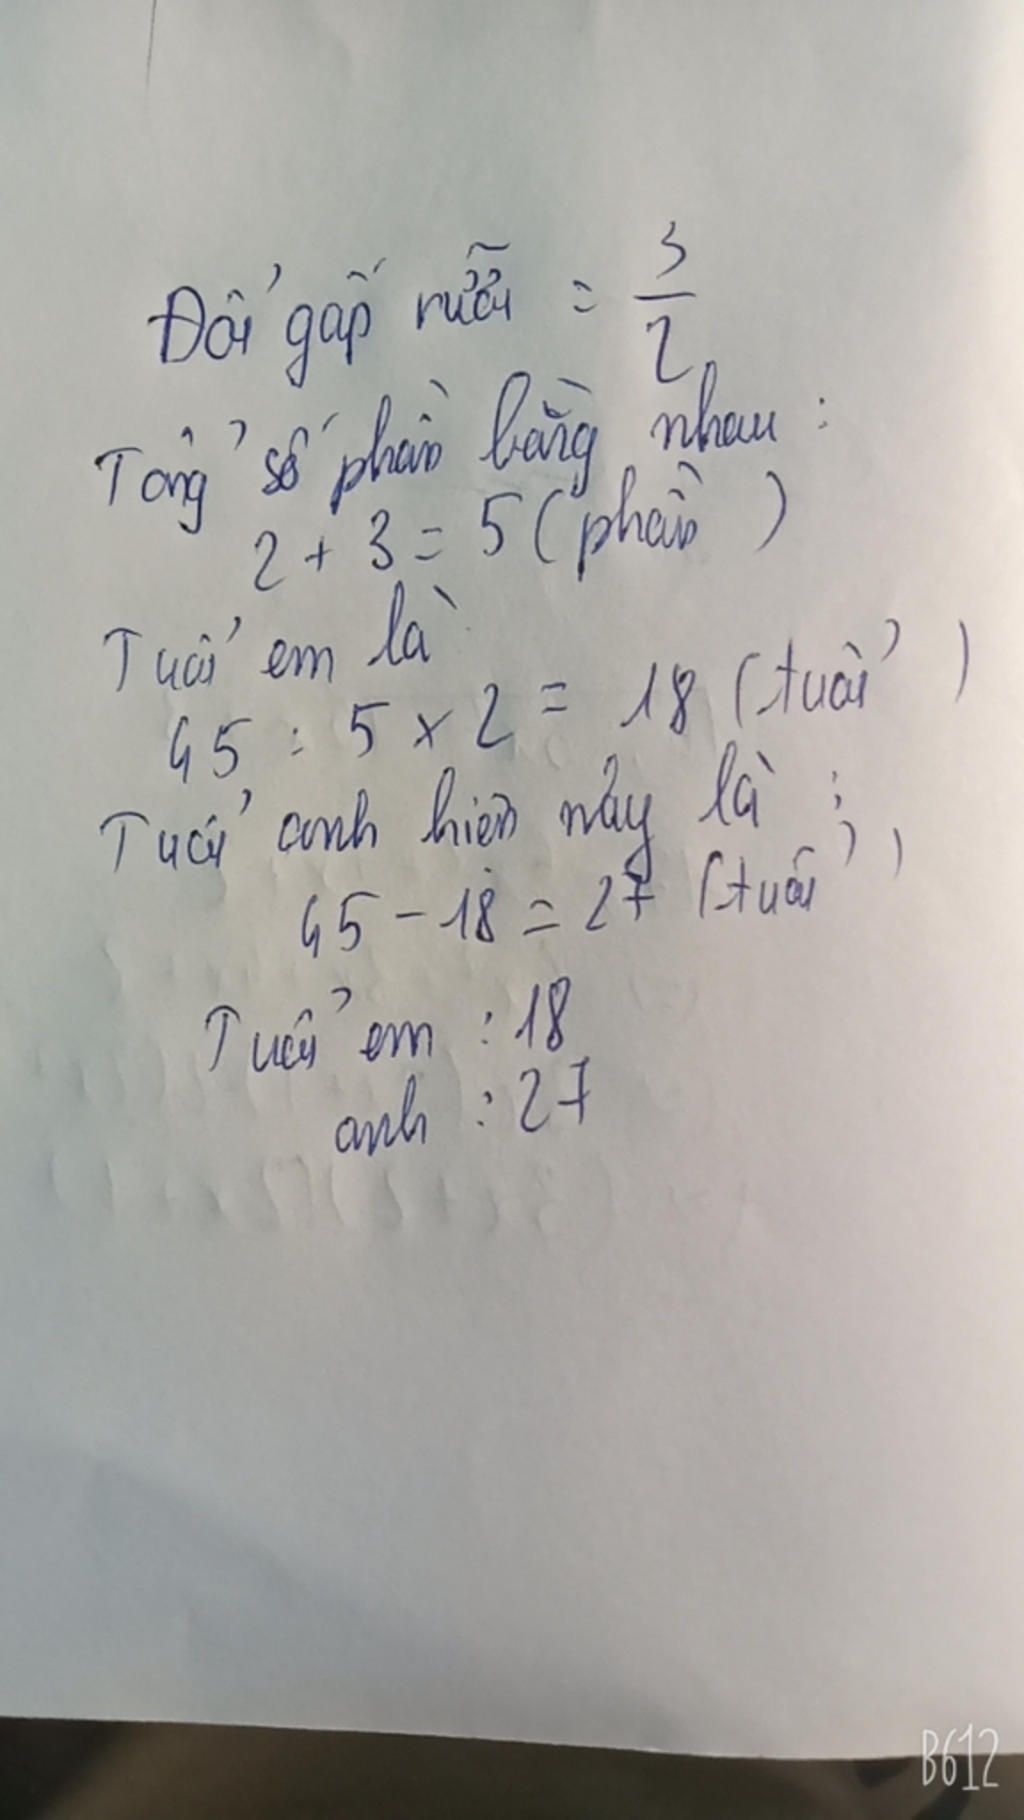 Đổi gấp rưỡi = 3/2
Tổng số phần bằng nhau :
2 + 3 = 5 (phần)
Tuổi em là
45 : 5 x 2 = 18 (tuổi)
Tuổi anh hiện nay là :
45 - 18 = 27 (tuổi)
Tuổi em : 18
anh : 27
B612